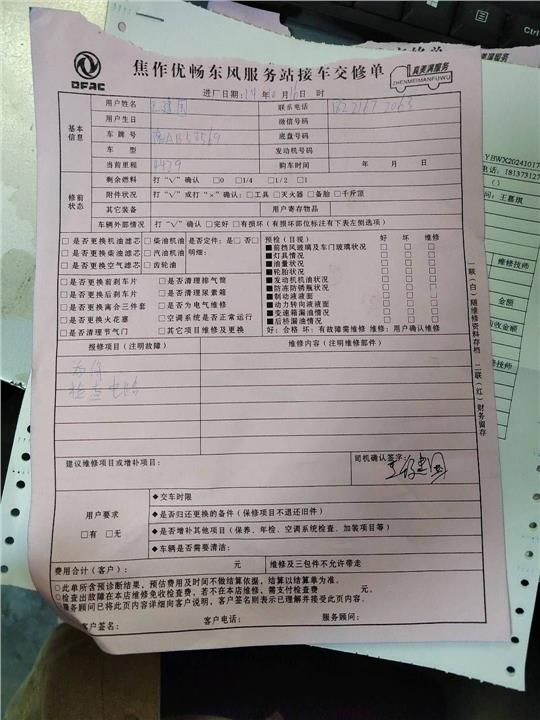 DFAC
焦作优畅东风服务站接车交修单
真美满服务
ZHENMEIMANFUWU
进厂日期: 年 月 16 日 时
基本信息
用户姓名
联系电话
用户生日
微信号码
车牌号
底盘号码
车型
发动机号码
当前里程
购车时间 年 月 日
修前状态
剩余燃料 打"√"确认 □0 □1/4 □1/2 □1
附件状况 打"√"或打"×"确认:□工具 □灭火器 □备胎 □千斤顶
其它装备
用户寄存物品
车辆外部情况 打"√"确认 □完好 □有损坏(有损坏部位标注有下表左侧选项)
□是否更换机油滤芯 □柴油机油 是否定件:是□否□
□是否更换柴油滤芯 □汽油机油
□是否更换空气滤芯 □齿轮油
□是否更换前刹车片 □是否清理排气筒
□是否更换后刹车片 □是否清理尿素箱
□是否更换离合三件套 □是否为电气维修
□是否更换火花塞 □空调系统是否正常运行
□是否清理节气门 □其它项目维修及更换
预检(目视) 好 坏 维修
■前挡风玻璃及车门玻璃状况 □ □ □
■灯具情况 □ □ □
■油量状况 □ □ □
■轮胎状况 □ □ □
■发动机机油状况 □ □ □
■防冻防锈瓶状况 □ □ □
■制动液液面 □ □ □
■动力转向液液面 □ □ □
■变速箱漏油情况 □ □ □
■后桥漏油情况 □ □ □
好:合格 坏:有故障需维修 维修:用户确认维修
报修项目(注明故障)
维修内容(注明维修部件)
检查
建议维修项目或增补项目:
司机确认签字:
用户要求
□有 □无
◆交车时限
◆是否归还更换的备件(保修项目不退还旧件)
◆是否增补其他项目(保养、年检、空调系统检查、加装项目等)
◆车辆是否需要清洁:
费用合计(客户): 元
维修及三包件不允许带走
○此单所含预诊断结果,预估费用及时间不做结算依据,结算以结算单为准。
○检查出故障在本店维修免收检查费,若不在本店维修,需支付检查费 元。
○服务顾问已将此页内容详细向客户说明,客户签名则表示已理解并接受此页内容。
客户签名: 客户电话: 服务顾问:
一联(白)随维修资料存档 二联(红)财务留存
YBWX20241017
电话:
问:王嘉琪
维修技师
金额
收金额
技师